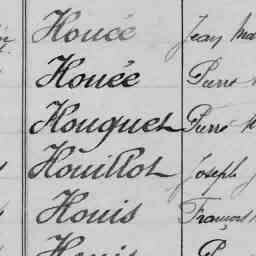 Houée Jean
Houée Pierre
Houguet Pierre
Houillot Joseph
Houis François
Houis